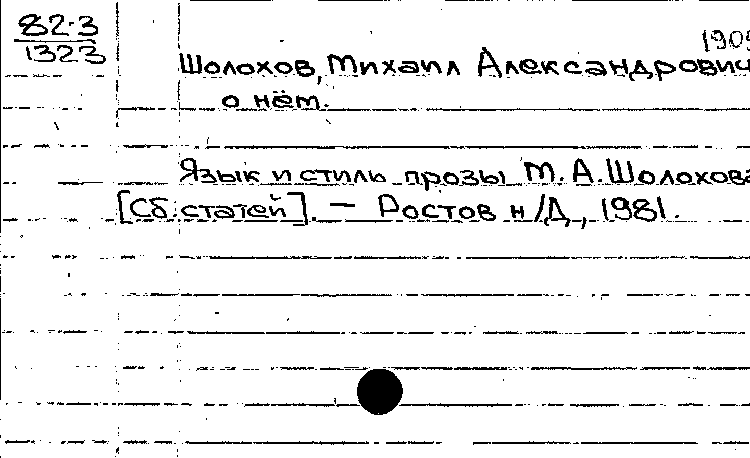 82.3
1323
1905
Шолохов, Михаил Александрович
о нём.
Язык и стиль прозы М.А.Шолохова
[Сб.статей]. – Ростов н/Д, 1981.